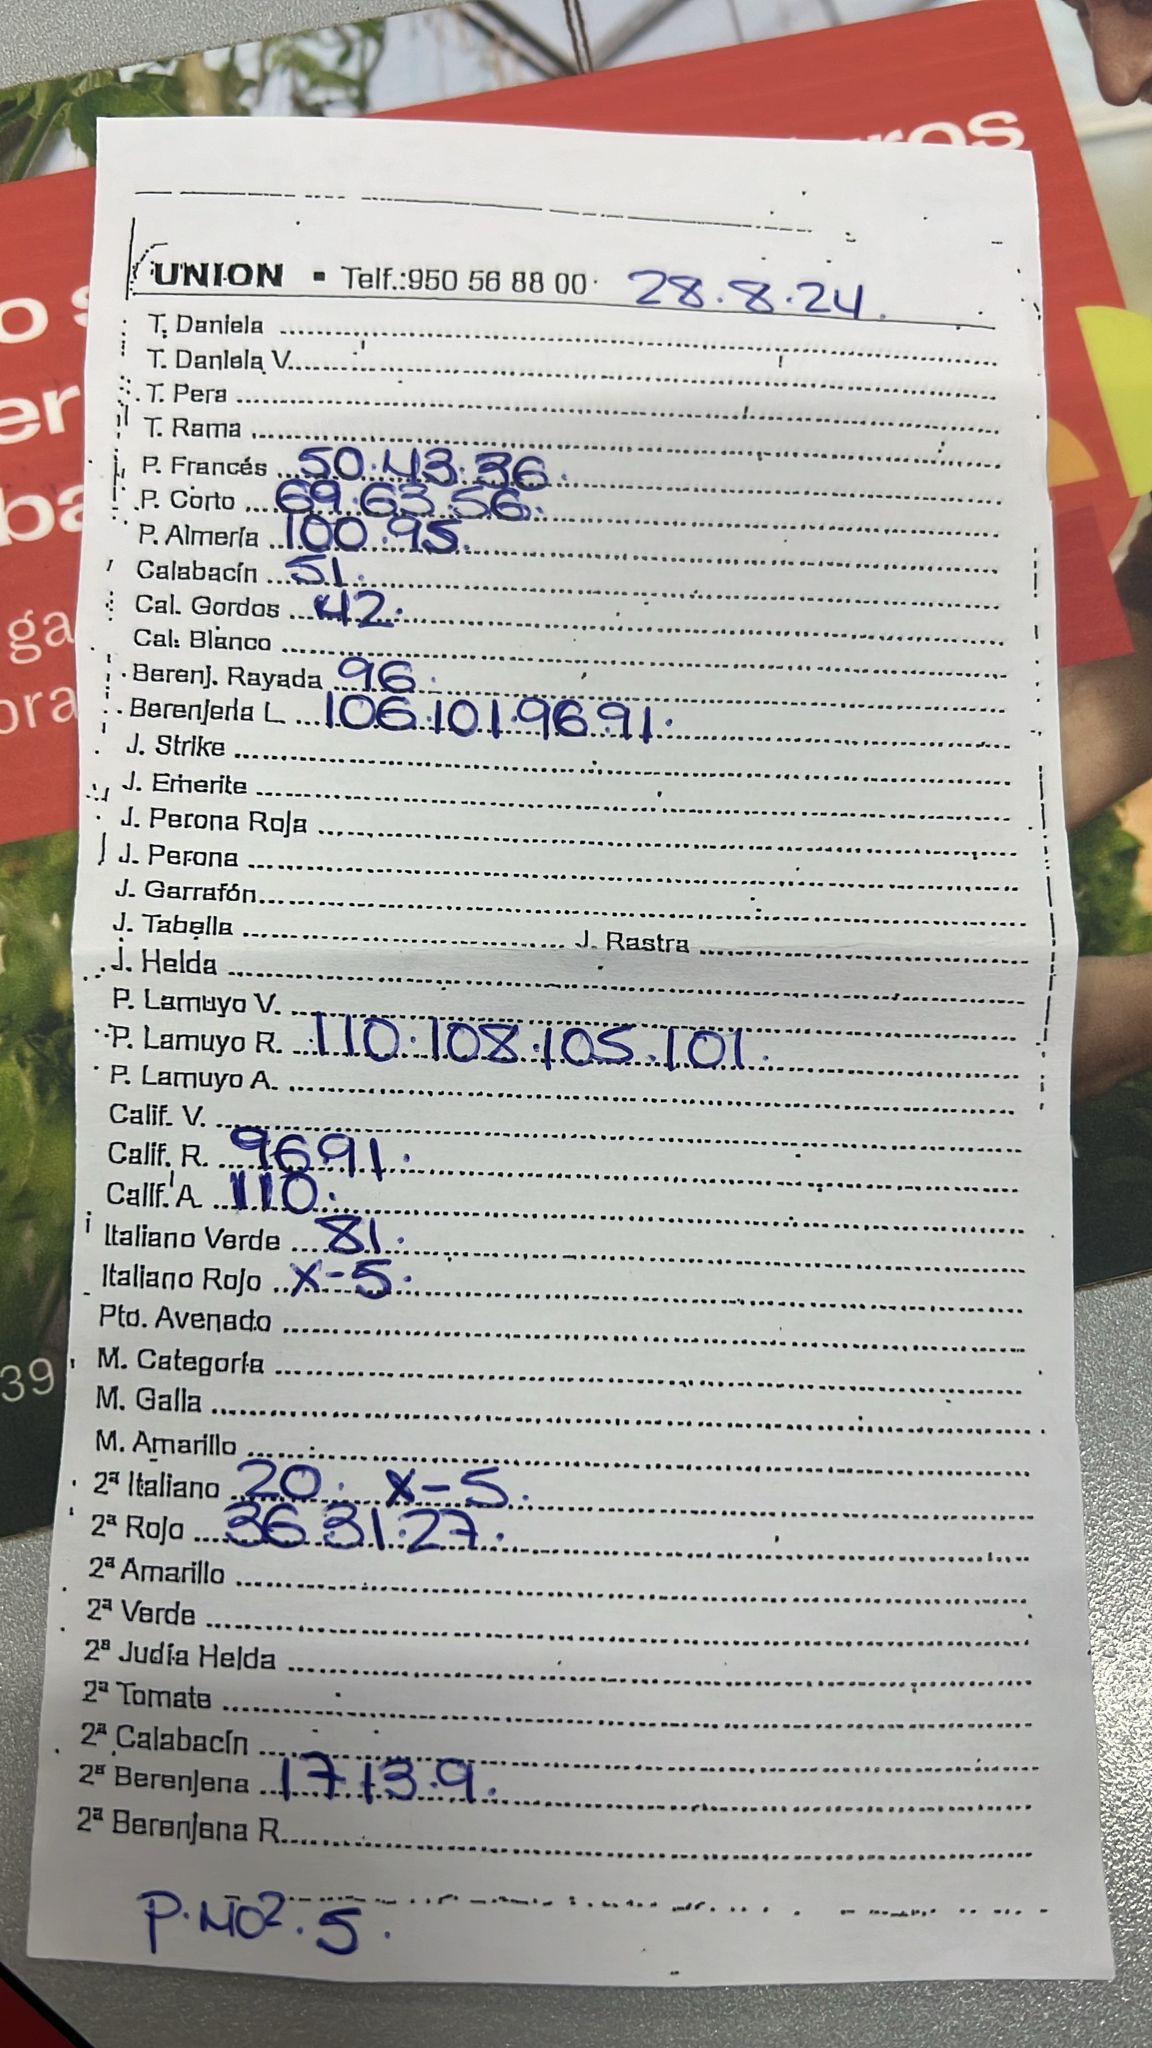 ros
o s
er
ba
ga
ora
39
UNION ▪ Telf.:950 56 88 00 28.8.24.
T. Daniela
T. Daniela V.
T. Pera
T. Rama
P. Francés 50.43.36.
P. Corto 69.63.56.
P. Almería 100.95.
Calabacín 51.
Cal. Gordos 42.
Cal. Blanco
Berenj. Rayada 96.
Berenjena L. 106.101.96.91.
J. Strike
J. Emerite
J. Perona Roja
J. Perona
J. Garrafón
J. Tabella J. Rastra
J. Helda
P. Lamuyo V.
P. Lamuyo R. 110.108.105.101.
P. Lamuyo A.
Calif. V.
Calif. R. 96.91.
Calif. A. 110.
Italiano Verde 81.
Italiano Rojo x-5.
Pto. Avenado
M. Categoría
M. Galia
M. Amarillo
2ª Italiano 20. x-5.
2ª Rojo 36.31.27.
2ª Amarillo
2ª Verde
2ª Judía Helda
2ª Tomate
2ª Calabacín
2ª Berenjena 17.13.9.
2ª Berenjena R.
5.